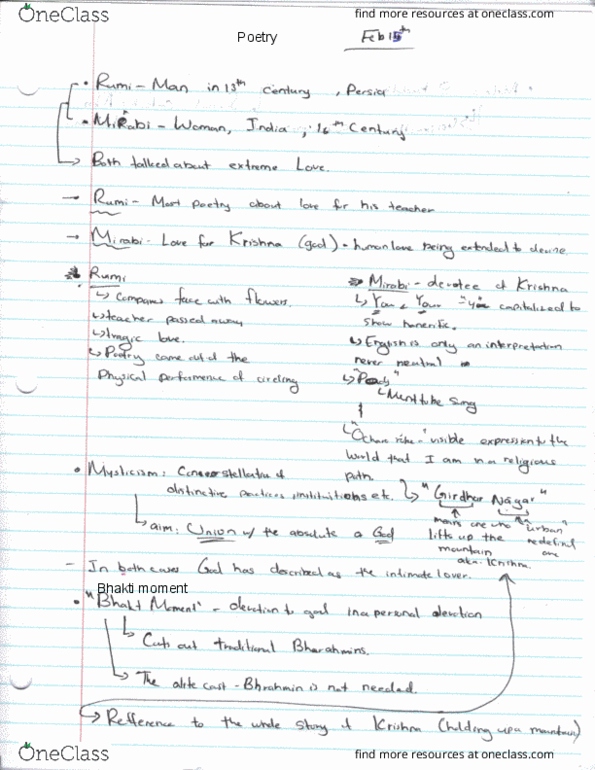 OneClass
find more resources at oneclass.com
Poetry
Feb 15th
• Rumi - Man in 13th century , Persia
• Mirabi - Woman, India , 16th Century
→ Both talked about extreme Love.
→ Rumi - Most poetry about love for his teacher
→ Mirabi - Love for Krishna (god) • human love being extended to devine
Rumi
↳ Compares face with flowers.
↳ teacher passed away
↳ tragic love.
↳ Poetry came out of the
Physical performence of circling
Mirabi - devotee of Krishna
↳ You & Your capitalized to
show
↳ English is only an interpretation
never neutral
↳
↳ Ment to be sung
↳ visible expression to the
world that I am in a religious
path.
↳ "Girdhar Nagar"
means one who
lifts up the
mountain
aka. Krishna.
"urban"
one
• Mysticism: of
distinctive practices, institutions etc.
↳ aim: Union w/ the absolute a God
- In both cases God has described as the intimate lover.
Bhakti moment
• "Bhakt Moment" - devotion to god in a personal devotion
↳ Cuts out traditional Bharahmins.
↳ The alite cast - Bhrahmin is not needed.
→ Refference to the whole story of Krishna (holding up a mountain)
OneClass
find more resources at oneclass.com